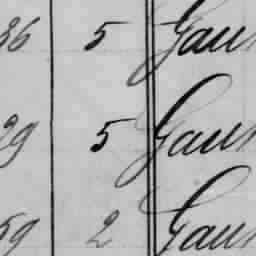 36 5 Gau
29 5 Gau
59 2 Gau